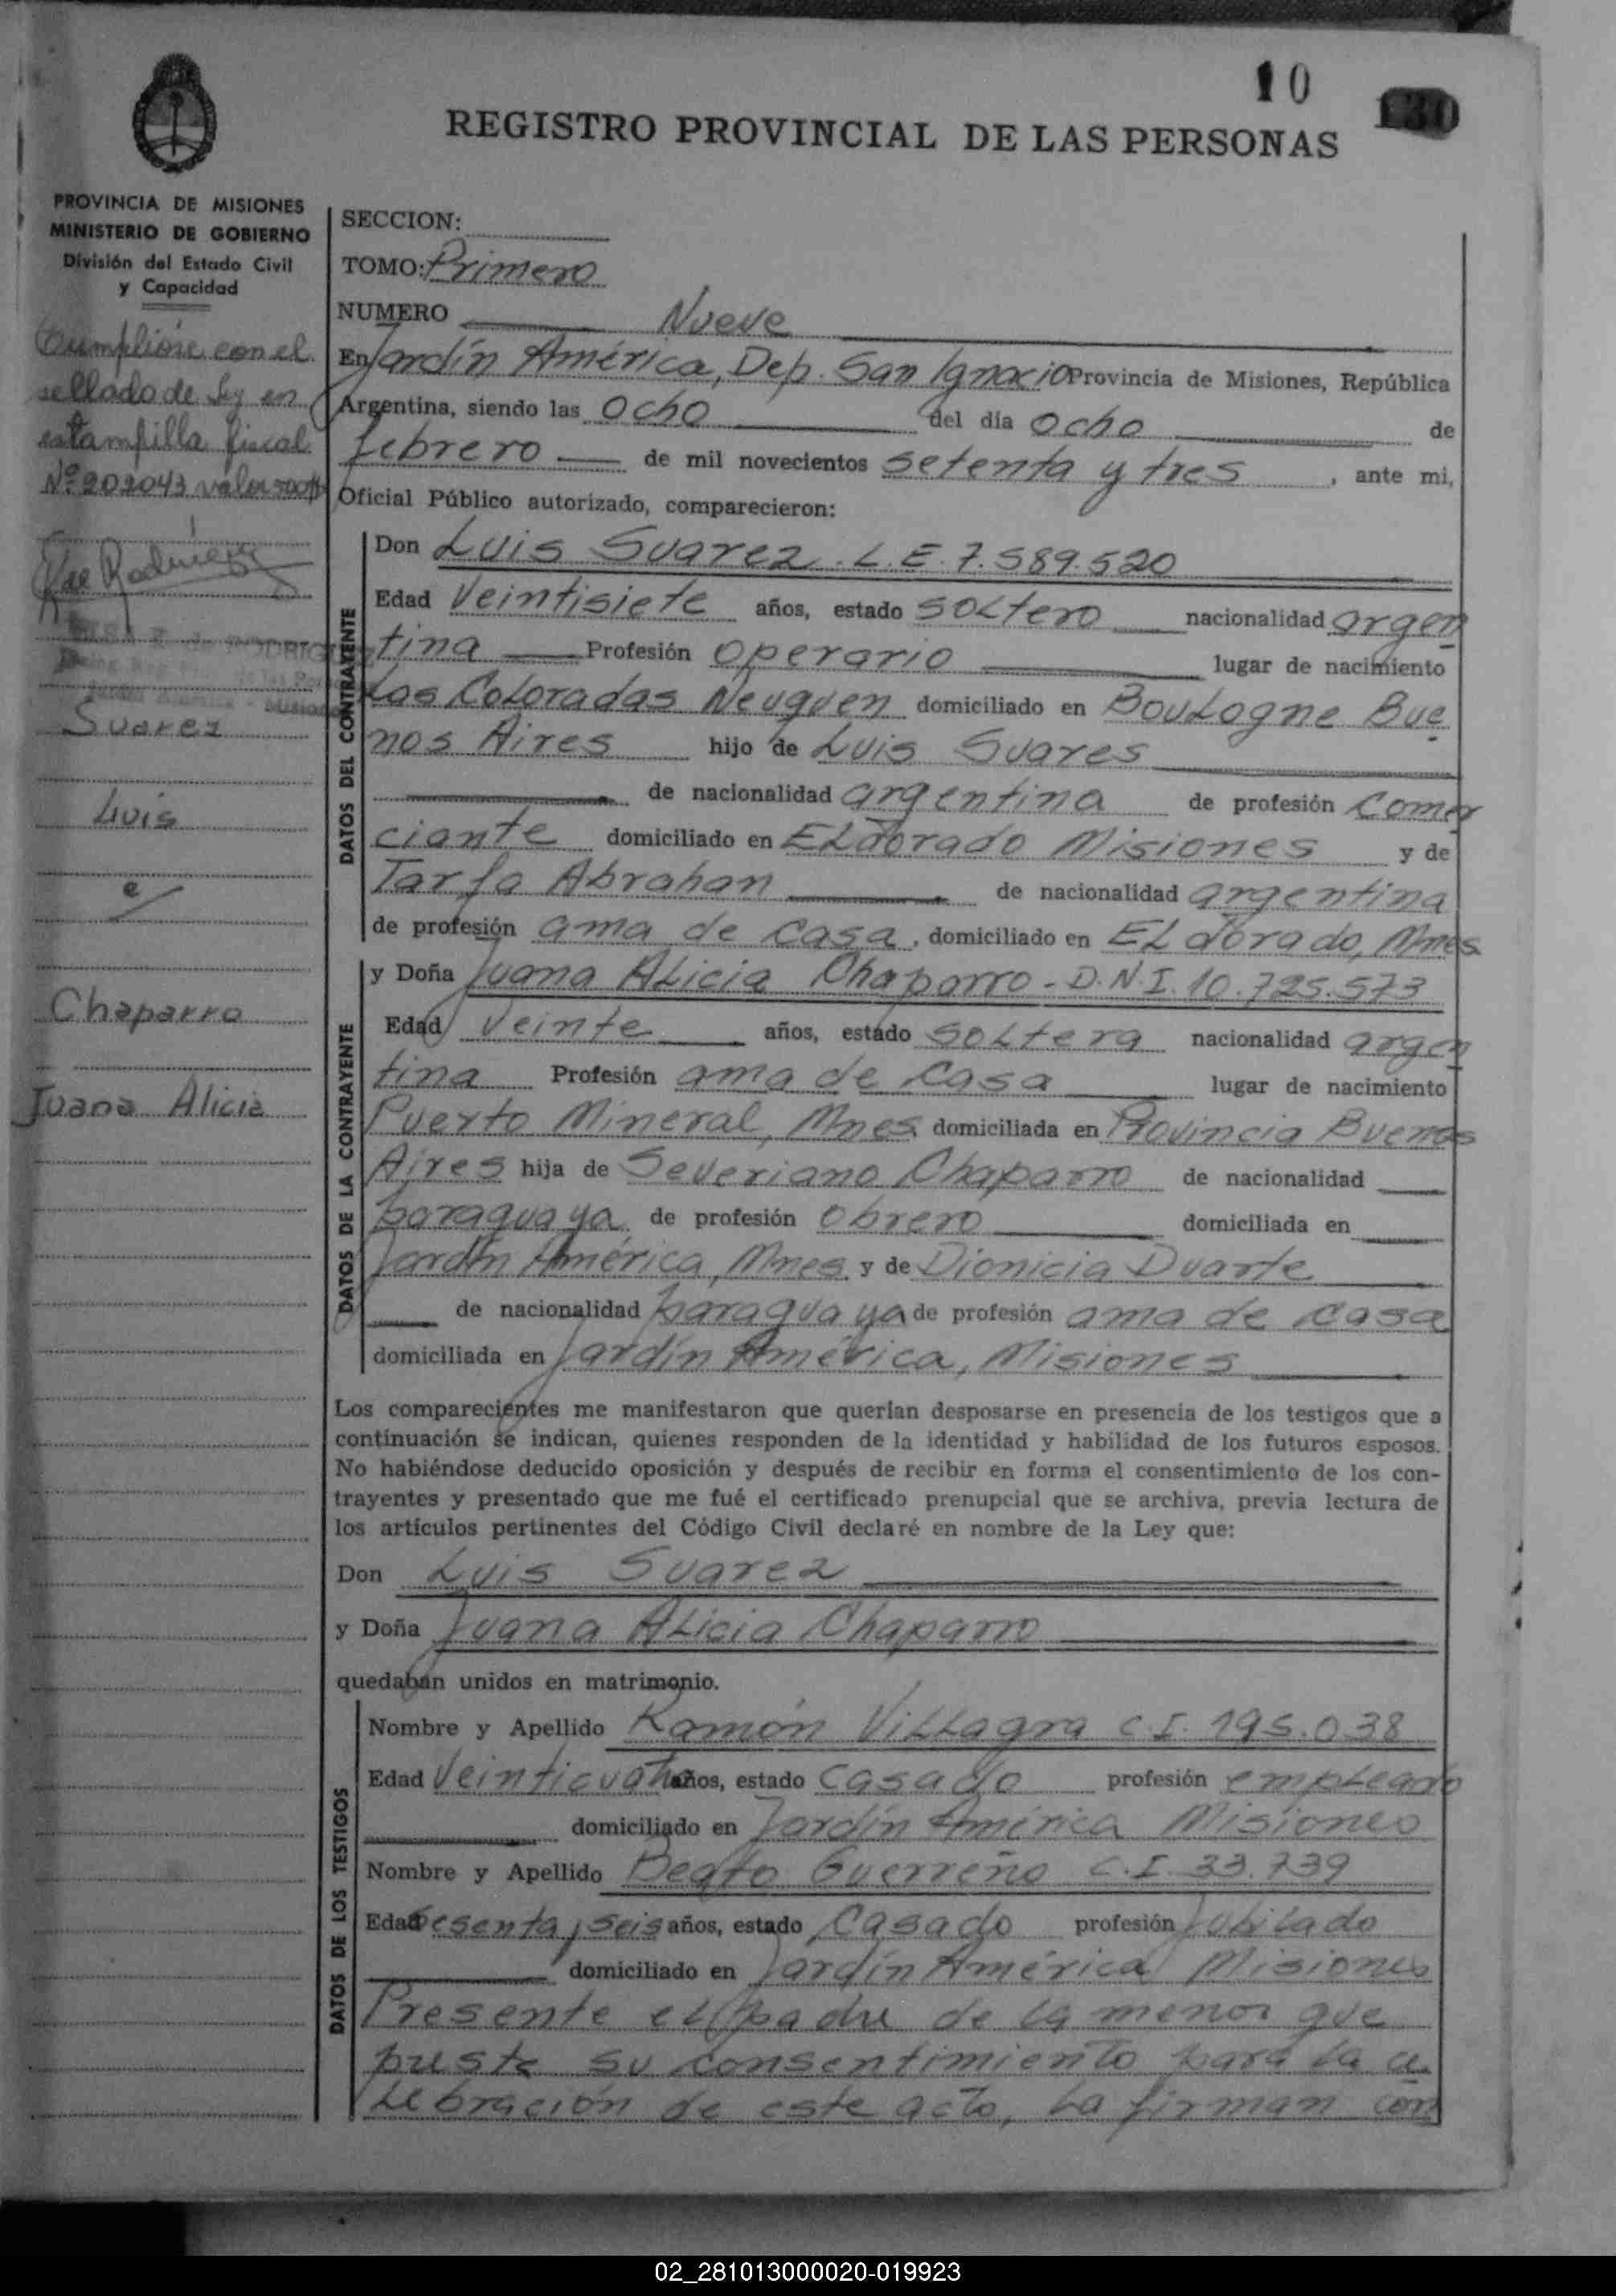 10
130
REGISTRO PROVINCIAL DE LAS PERSONAS
PROVINCIA DE MISIONES
MINISTERIO DE GOBIERNO
División del Estado Civil
y Capacidad
Cumplióse con el
sellado de ley en
estampilla fiscal
Nº 202043 valor
Suarez
Luis
c/
Chaparro
Juana Alicia
SECCION:
TOMO: Primero
NUMERO Nueve
En Jardín América, Dep. San Ignacio Provincia de Misiones, República
Argentina, siendo las Ocho del día Ocho de
febrero de mil novecientos setenta y tres, ante mi,
Oficial Público autorizado, comparecieron:
DATOS DEL CONTRAYENTE
Don Luis Suarez. L.E. 7.589.520
Edad Veintisiete años, estado soltero nacionalidad argen
tina Profesión operario lugar de nacimiento
Las Coloradas Neuquen domiciliado en Boulogne Bue
nos Aires hijo de Luis Suares
de nacionalidad argentina de profesión Comer
ciante domiciliado en Eldorado Misiones y de
Tarfa Abrahan de nacionalidad argentina
de profesión ama de casa, domiciliado en Eldorado, Mnes
DATOS DE LA CONTRAYENTE
y Doña Juana Alicia Chaparro - D.N.I. 10.725.573
Edad Veinte años, estado soltera nacionalidad argen
tina Profesión ama de casa lugar de nacimiento
Puerto Mineral, Mnes domiciliada en Provincia Buenos
Aires hija de Severiano Chaparro de nacionalidad
paraguaya de profesión Obrero domiciliada en
Jardín América, Mnes y de Dionicia Duarte
de nacionalidad paraguaya de profesión ama de casa
domiciliada en Jardín América, Misiones
Los comparecientes me manifestaron que querían desposarse en presencia de los testigos que a
continuación se indican, quienes responden de la identidad y habilidad de los futuros esposos.
No habiéndose deducido oposición y después de recibir en forma el consentimiento de los con-
trayentes y presentado que me fué el certificado prenupcial que se archiva, previa lectura de
los artículos pertinentes del Código Civil declaré en nombre de la Ley que:
Don Luis Suarez
y Doña Juana Alicia Chaparro
quedaban unidos en matrimonio.
DATOS DE LOS TESTIGOS
Nombre y Apellido Ramón Villagra C.I. 195.038
Edad Veinticuatro años, estado Casado profesión empleado
domiciliado en Jardín América Misiones
Nombre y Apellido Beato Guerreño C.I. 33.739
Edad Sesenta y seis años, estado Casado profesión Jubilado
domiciliado en Jardín América Misiones
Presente el padre de la menor que
presta su consentimiento para la ce
lebración de este acto, la firman con
02_281013000020-019923